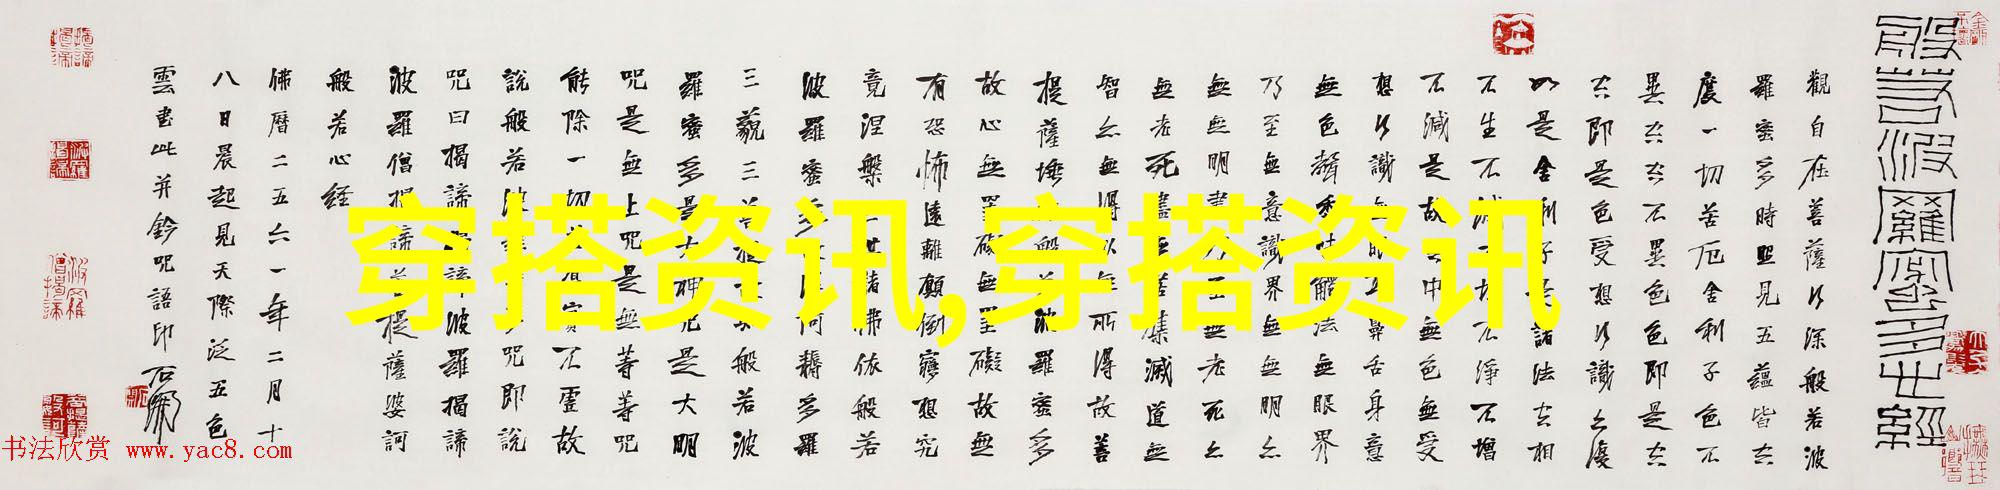 般若波羅蜜多心經
觀自在菩薩行深般若波
羅蜜多時照見五蘊皆空
度一切苦厄舍利子色不
異空空不異色色即是空
空即是色受想行識亦復
如是舍利子是諸法空相
不生不滅不垢不淨不增
不減是故空中無色無受
想行識無眼耳鼻舌身意
無色聲香味觸法無眼界
乃至無意識界無無明亦
無無明盡乃至無老死亦
無老死盡無苦集滅道無
智亦無得以無所得故菩
提薩埵依般若波羅蜜多
故心無罣礙無罣礙故無
有恐怖遠離顛倒夢想究
竟涅槃三世諸佛依般若
波羅蜜多故得阿耨多羅
三藐三菩提故知般若波
羅蜜多是大神咒是大明
咒是無上咒是無等等咒
能除一切苦真實不虛故
說般若波羅蜜多咒即說
咒曰揭諦揭諦波羅揭諦
波羅僧揭諦菩提薩婆訶
般若心經
佛曆二五六一年二月十
八日晨起見天際泛五色
雲書此并鈐咒語印
穿搭资讯,穿搭资讯
书法欣赏 www.yac8.com